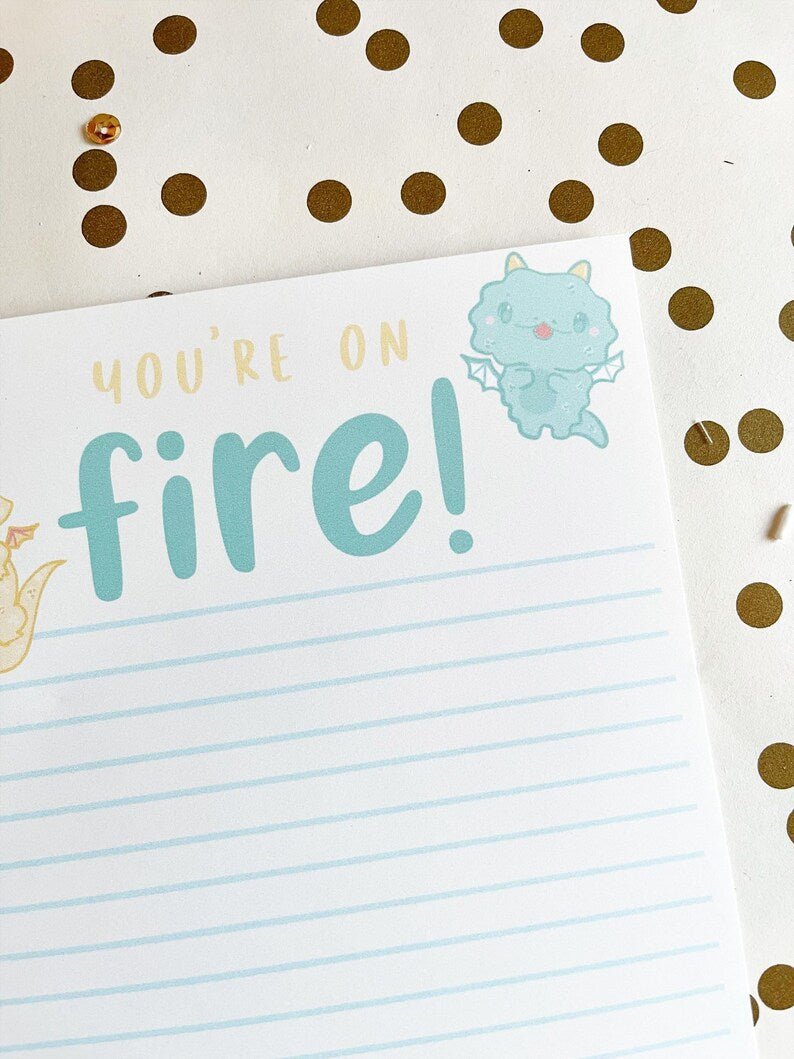 YOU'RE ON
fire!